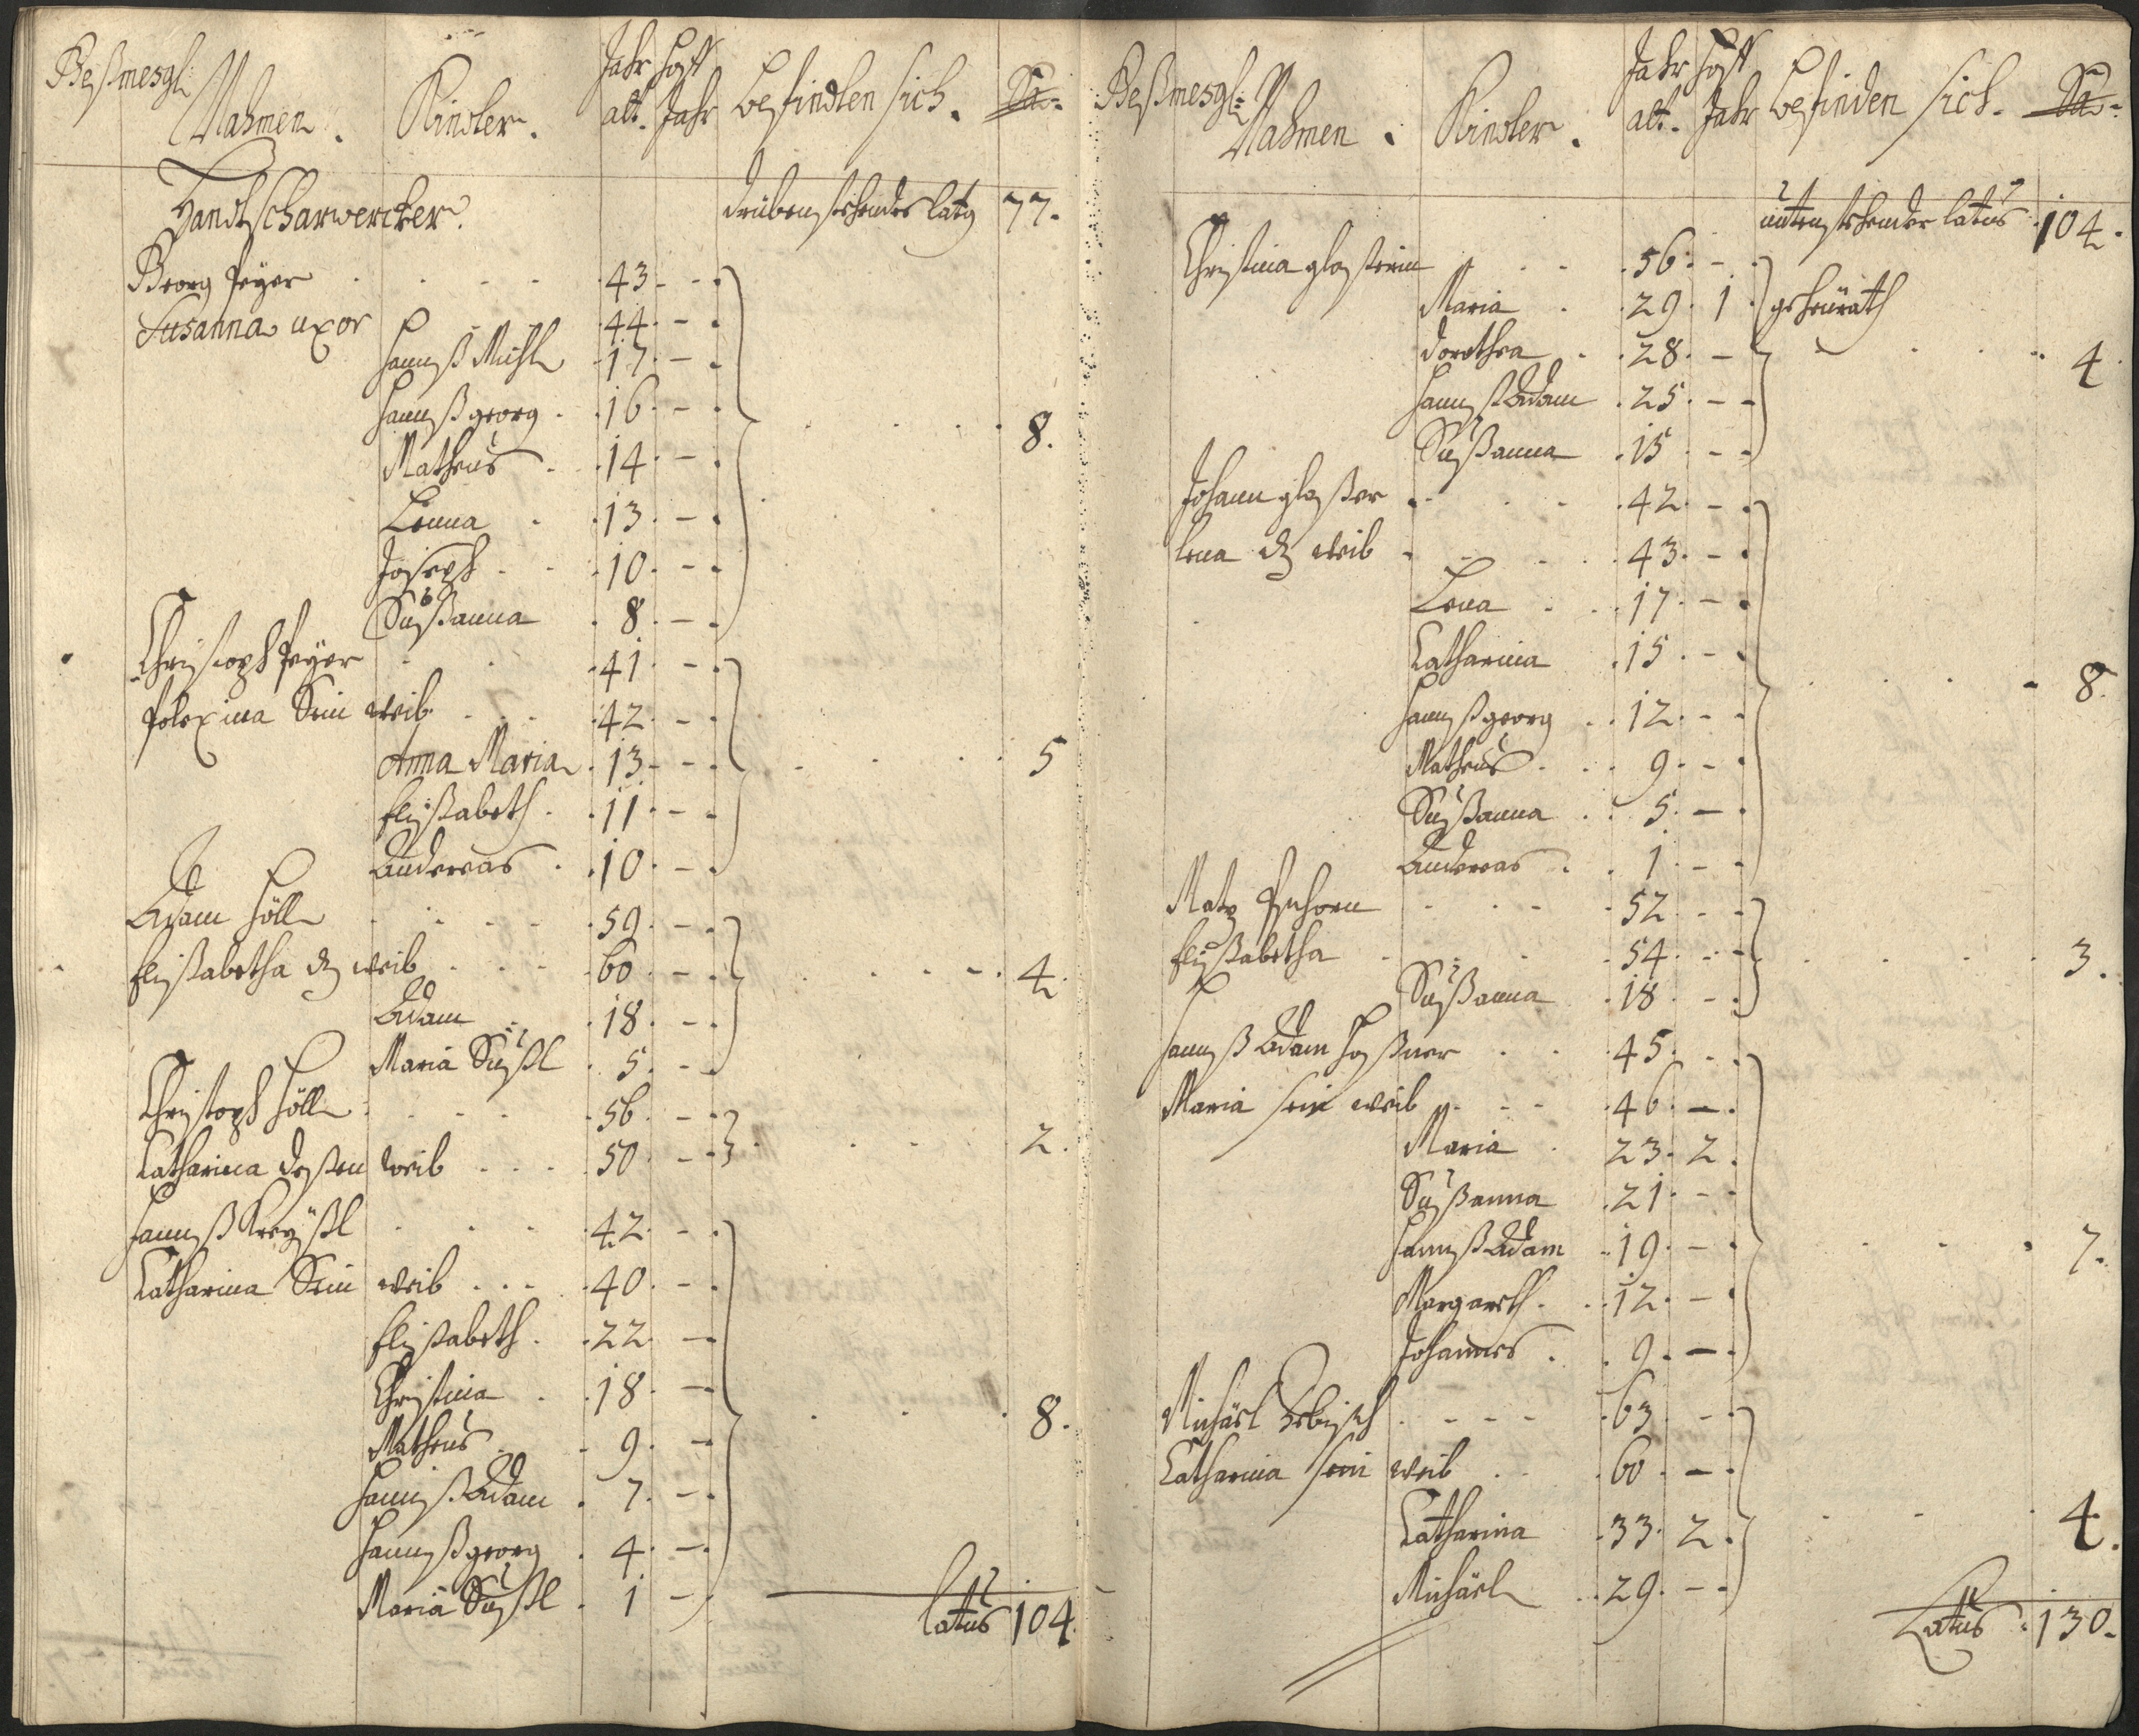 Beßmesgl:
Nahmen. Kinder. Jahr alt. Hoff Jahr befindten sich. Sa:
Handtscharwercker.
drübenstehendes latus 77.
Georg Peyer 43. -
Susanna uxor 44. -
Hannß Michl 17. -
Hannß georg 16. -
Matheus 14. - 8.
Lenna 13. -
Joseph 10. -
Sußanna 8. -
Christoph Peyer 41. -
Polexina Sein weib 42. -
Anna Maria 13. - 5
Elißabeth 11. -
Andereas 10. -
Adam Höll 59. -
Elißabetha d weib 60. - 4.
Adam 18. -
Maria Sußl 5. -
Christoph Höll 56. -
Catharina deßen weib 50. - 2.
Hannß Kreyßl 42. -
Catharina Sein weib 40. -
Elißabeth 22. -
Christina 18. -
Matheus 9. - 8.
Hannß Adam 7. -
Hannß georg 4. -
Maria Sußl 1 -
latus 104.
Beßmesgl:
Nahmen. Kinder. Jahr alt. Hoff Jahr befinden sich. Sa:
untenstehender latus 104.
Christina glaßerin 56. -
Maria 29. 1 geheürath
Dorothea 28. - 4.
Hannß Adam 25. -
Sußanna 15 -
Johann glaßer 42. -
Lena d weib 43. -
Lena 17. -
Catharina 15. -
Hannß georg 12. - 8.
Matheus 9. -
Sußanna 5. -
Andereas 1 -
Matz 52 -
Elißabetha 54 - 3.
Sußanna 18 -
Hannß Adam Haßner 45. -
Maria sein weib 46. -
Maria 23. 2.
Sußanna 21. -
Hannß Adam 19. - 7.
Margareth 12. -
Johannes 9. -
Michäel 63 -
Catharina sein weib 60 -
Catharina 33. 2. 4.
Michäel 29. -
Latus 130.